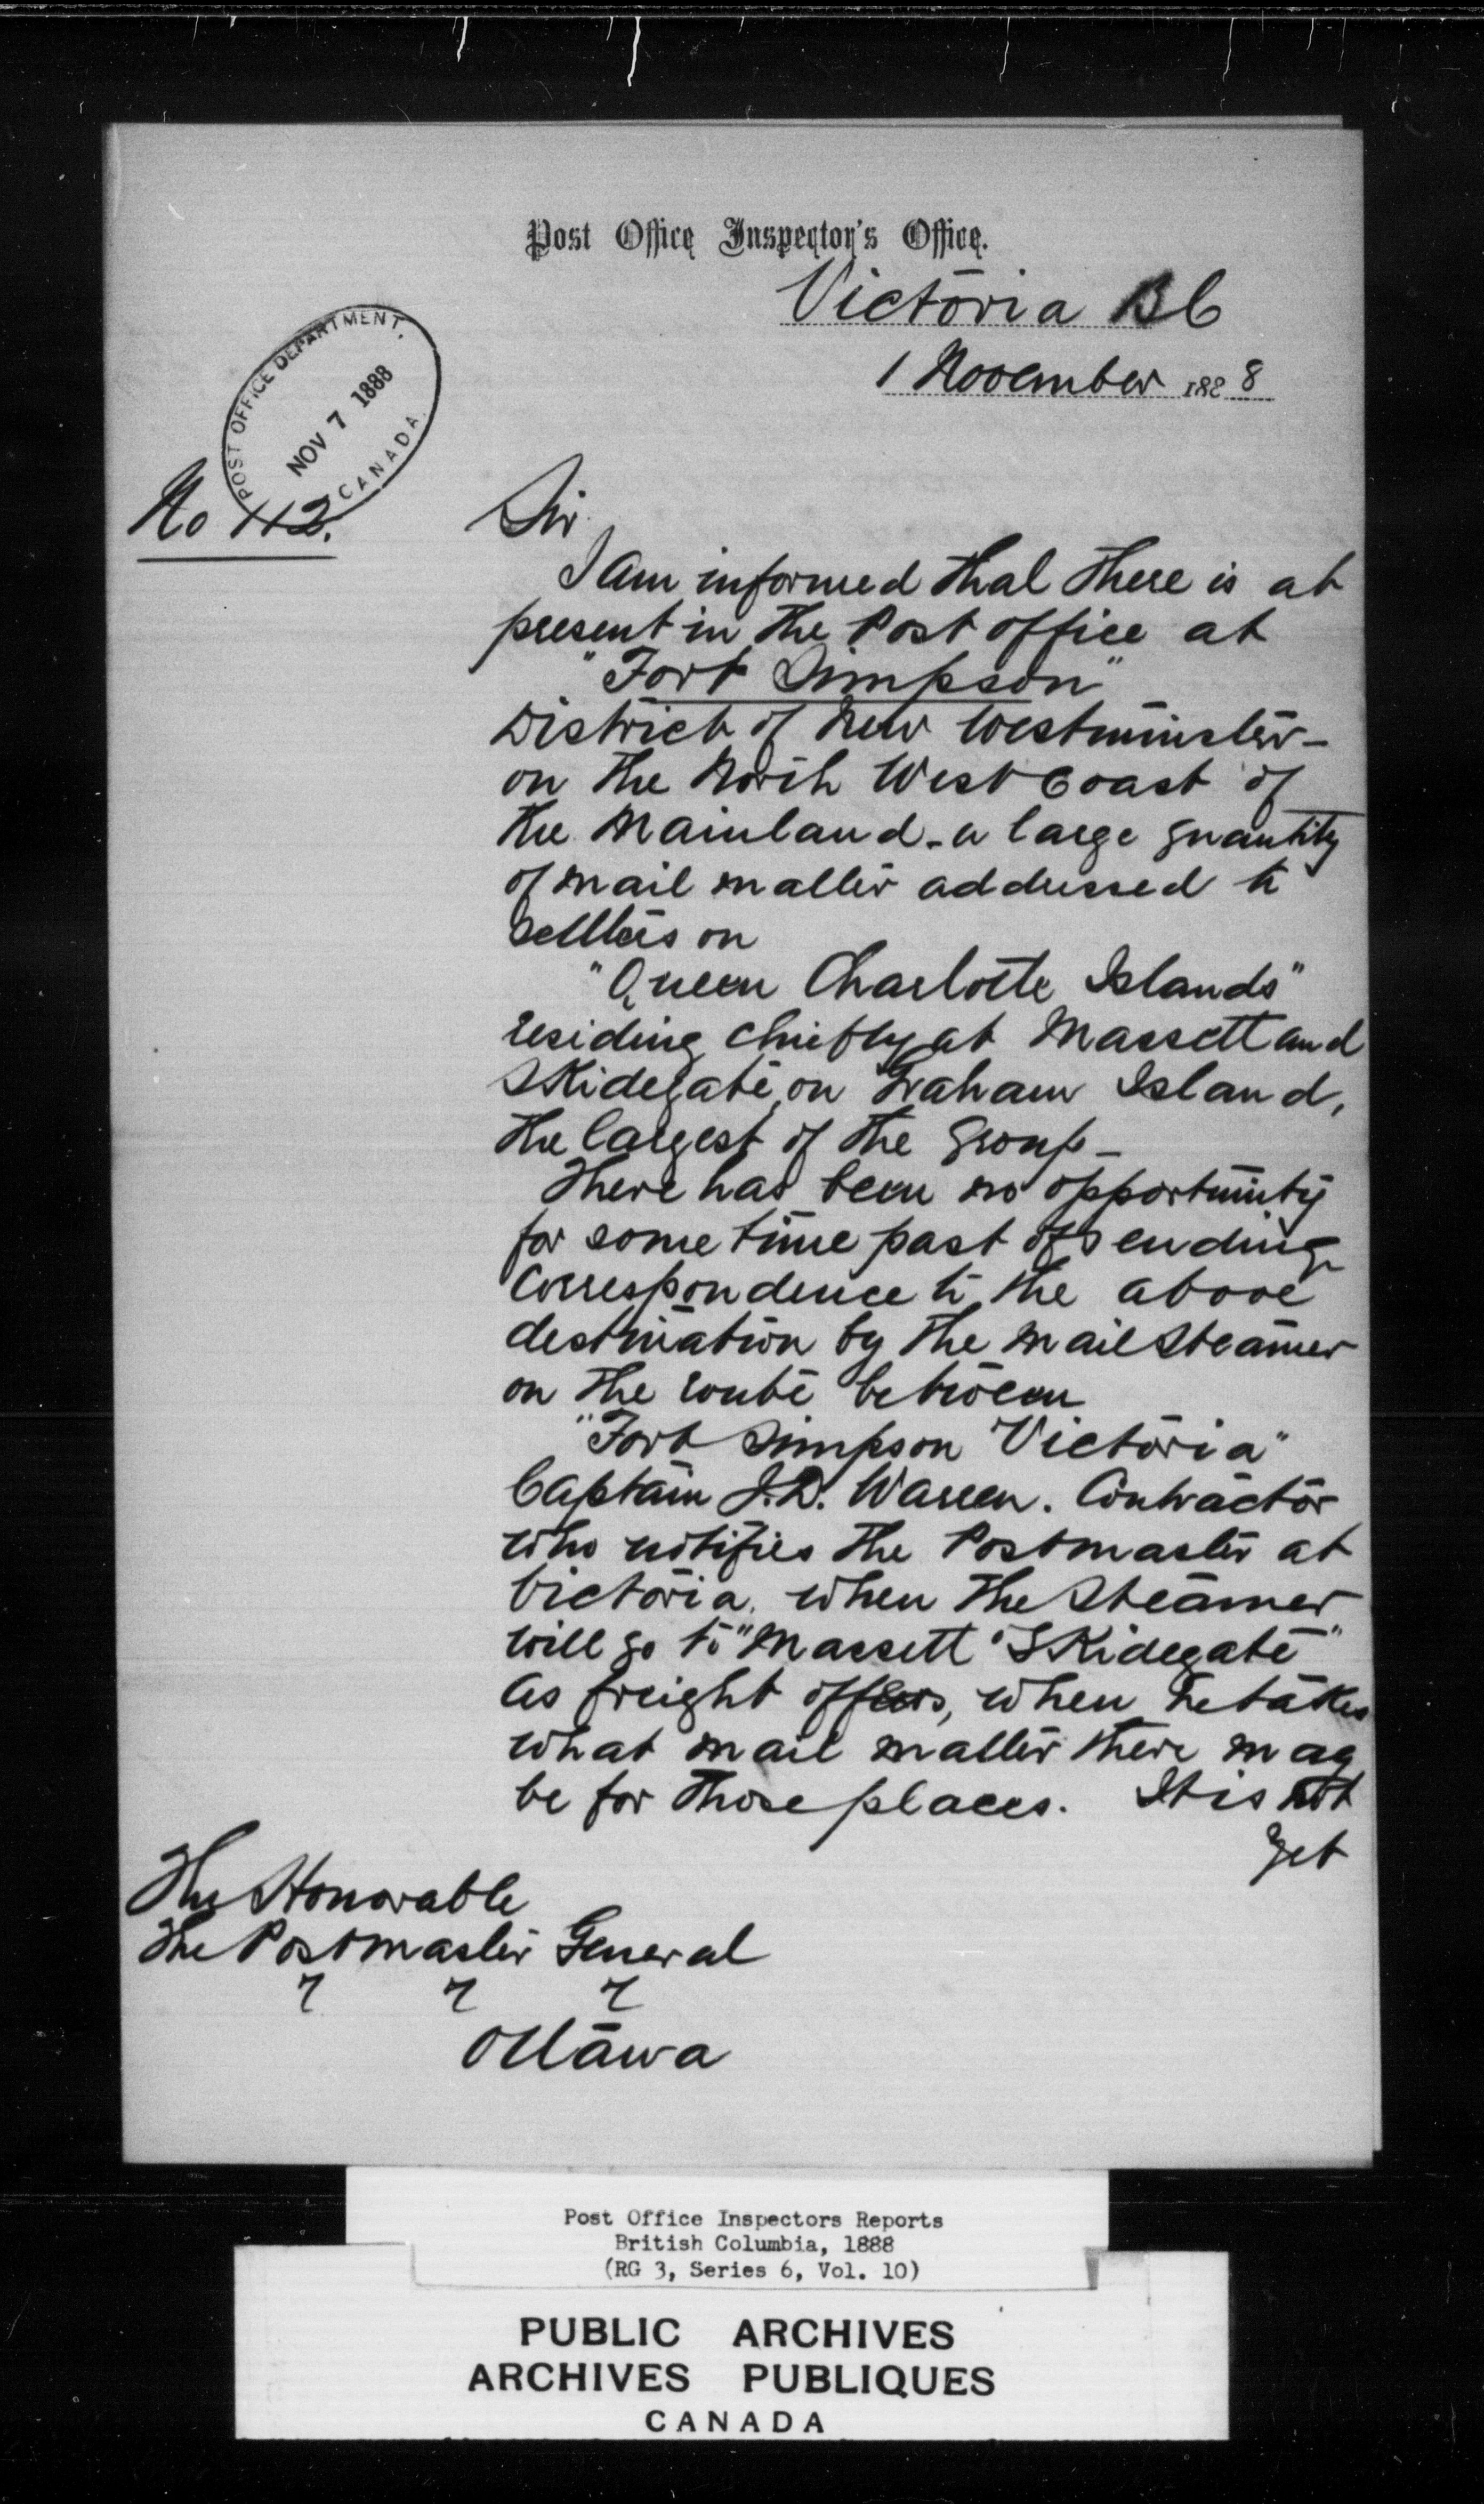 Post Office Inspector's Office.
Victoria BC
1 November 1888
POST OFFICE DEPARTMENT.
NOV 7 1888
CANADA
No 112.
Sir
I am informed that there is at
present in the Post office at
"Fort Simpson"
District of New Westminster-
on the North West Coast of
the Mainland - a large quantity
of mail matter addressed to
settlers on
"Queen Charlotte Islands"
residing chiefly at Massett and
Skidegate, on Graham Island,
the largest of the Group-
There has been no opportunity
for some time past of sending
correspondence to the above
destination by the Mail Steamer
on the route between
"Fort Simpson Victoria"
Captain J.D. Warren. Contractor
who notifies the Postmaster at
Victoria, when the Steamer
will go to "Massett "Skidegate"
as freight offers, when he takes
what mail matter there may
be for those places. It is not
yet
The Honorable
The Postmaster General
Ottawa
Post Office Inspectors Reports
British Columbia, 1888
(RG 3, Series 6, Vol. 10)
PUBLIC ARCHIVES
ARCHIVES PUBLIQUES
CANADA